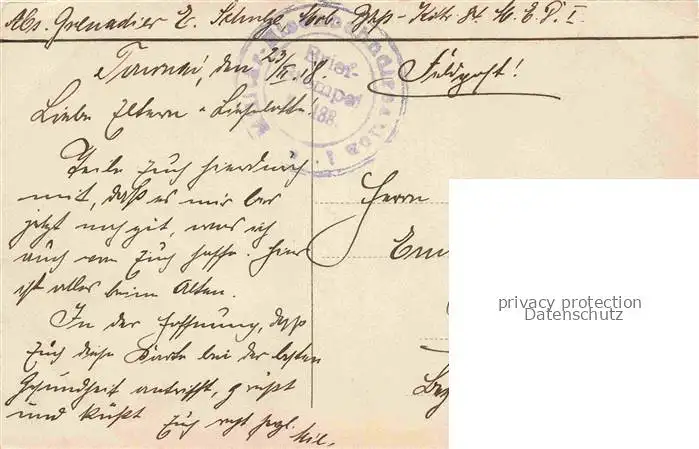 Abs. Grenadier E. Schulze, M. E. D. I.
Tournai, den 23/III.18.
Feldpost!
Liebe Eltern u. Lieselotte!
Brief-
Stempel
Teile Euch hierdurch
mit, daß es mir bis
jetzt noch gut, was ich
auch von Euch hoffe. Hier
ist alles beim Alten.
In der Hoffnung, daß
Euch diese Karte bei der besten
Gesundheit antrifft, grüßt
und küßt Euch recht herzl.
Herrn
privacy protection
Datenschutz